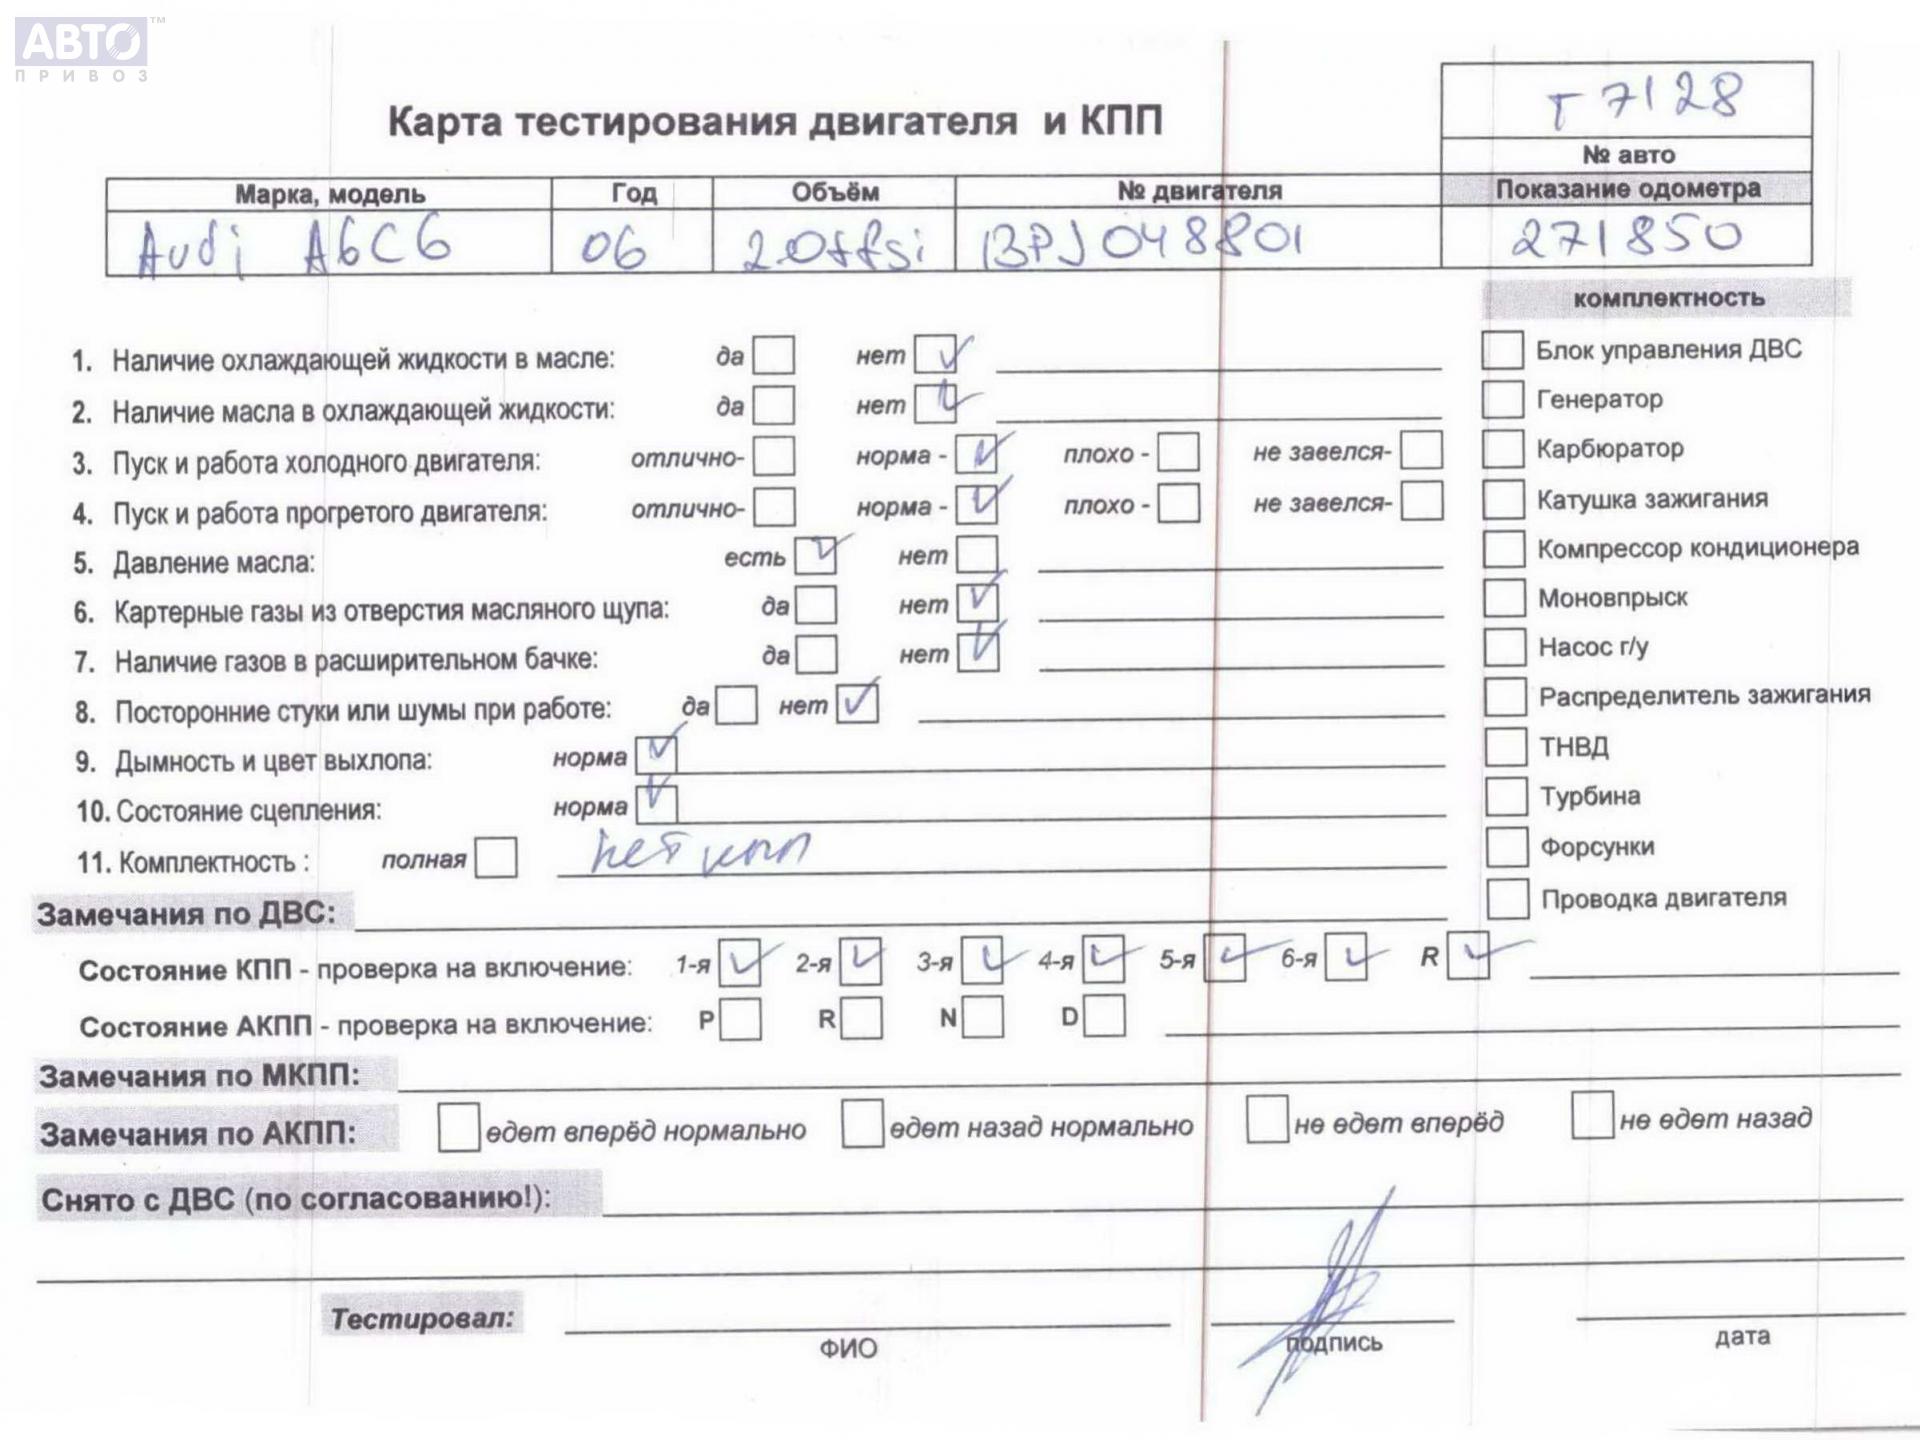 АВТО™
ПРИВОЗ
Карта тестирования двигателя и КПП
т 7128
№ авто
Марка, модель Год Объём № двигателя Показание одометра
Audi A6C6 06 2.0tfsi BPJ048801 271850
комплектность
1. Наличие охлаждающей жидкости в масле: да нет ✓
2. Наличие масла в охлаждающей жидкости: да нет ✓
3. Пуск и работа холодного двигателя: отлично- норма - ✓ плохо - не завелся-
4. Пуск и работа прогретого двигателя: отлично- норма - ✓ плохо - не завелся-
5. Давление масла: есть ✓ нет
6. Картерные газы из отверстия масляного щупа: да нет ✓
7. Наличие газов в расширительном бачке: да нет ✓
8. Посторонние стуки или шумы при работе: да нет ✓
9. Дымность и цвет выхлопа: норма ✓
10. Состояние сцепления: норма ✓
11. Комплектность : полная нет кпп
Блок управления ДВС
Генератор
Карбюратор
Катушка зажигания
Компрессор кондиционера
Моновпрыск
Насос г/у
Распределитель зажигания
ТНВД
Турбина
Форсунки
Проводка двигателя
Замечания по ДВС:
Состояние КПП - проверка на включение: 1-я ✓ 2-я ✓ 3-я ✓ 4-я ✓ 5-я ✓ 6-я ✓ R ✓
Состояние АКПП - проверка на включение: P R N D
Замечания по МКПП:
Замечания по АКПП: едет вперёд нормально едет назад нормально не едет вперёд не едет назад
Снято с ДВС (по согласованию!):
Тестировал:
ФИО подпись дата